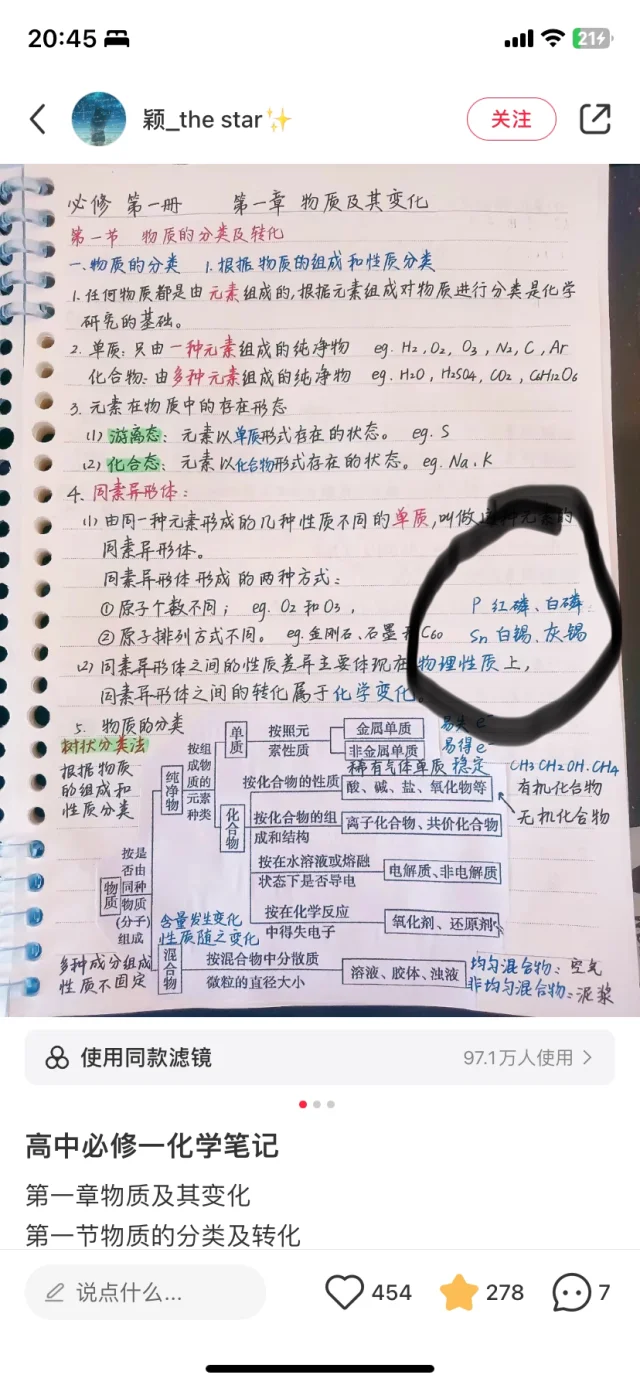 20:45
21
颖_the star✨
关注
必修 第一册 第一章 物质及其变化
第一节 物质的分类及转化
一.物质的分类 1.根据物质的组成和性质分类
1.任何物质都是由元素组成的,根据元素组成对物质进行分类是化学
研究的基础。
2.单质:只由一种元素组成的纯净物 eg.H₂,O₂,O₃,N₂,C,Ar
化合物:由多种元素组成的纯净物 eg.H₂O,H₂SO₄,CO₂,C₆H₁₂O₆
3.元素在物质中的存在形态
(1)游离态:元素以单质形式存在的状态。 eg.S
(2)化合态:元素以化合物形式存在的状态。eg.Na.K
4.同素异形体:
(1)由同一种元素形成的几种性质不同的单质,叫做这种元素的
同素异形体。
同素异形体形成的两种方式:
①原子个数不同; eg.O₂和O₃, P 红磷、白磷
②原子排列方式不同。 eg.金刚石、石墨和C₆₀ Sn 白锡、灰锡
(2)同素异形体之间的性质差异主要体现在物理性质上,
同素异形体之间的转化属于化学变化。
5.物质的分类
树状分类法
根据物质
的组成和
性质分类
物质
按是
否由
同种
物质
(分子)
组成
纯净物
按组
成物
质的
元素
种类
单质
按照元
素性质
金属单质
易失e⁻
非金属单质
易得e⁻
稀有气体单质 稳定
化合物
按化合物的性质
酸、碱、盐、氧化物等
CH₃CH₂OH.CH₄
有机化合物
无机化合物
按化合物的组
成和结构
离子化合物、共价化合物
按在水溶液或熔融
状态下是否导电
电解质、非电解质
按在化学反应
中得失电子
氧化剂、还原剂
含量发生变化
性质随之变化
多种成分组成
性质不固定
混合物
按混合物中分散质
微粒的直径大小
溶液、胶体、浊液
均匀混合物:空气
非均匀混合物:泥浆
使用同款滤镜
97.1万人使用
高中必修一化学笔记
第一章物质及其变化
第一节物质的分类及转化
说点什么...
454
278
7